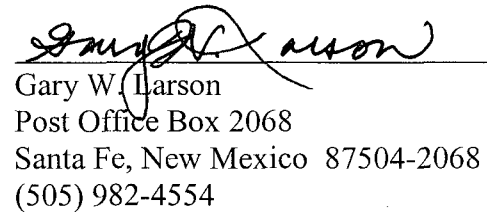 Gary W. Larson
Gary W. Larson
Post Office Box 2068
Santa Fe, New Mexico  87504-2068
(505) 982-4554